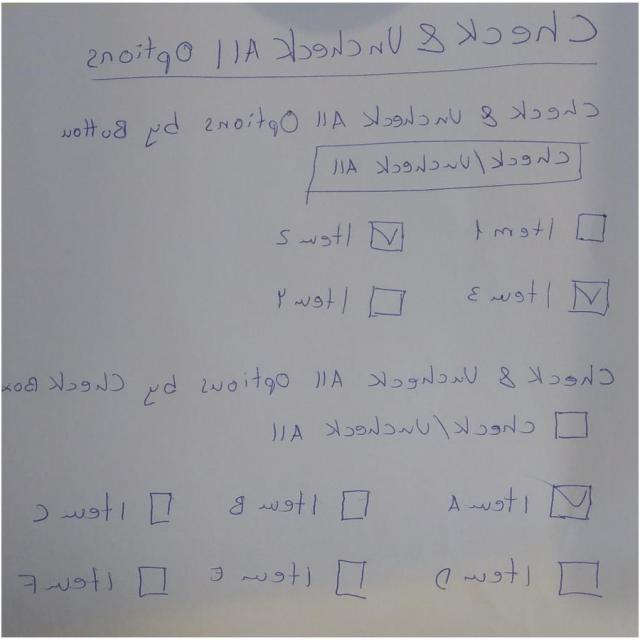 Check & Uncheck All Options
Check & Uncheck All Options by Button
Check/Uncheck All
Item 1 Item 2
Item 3 Item 4
Check & Uncheck All Options by Check Box
Check/Uncheck All
Item A Item B Item C
Item D Item E Item F